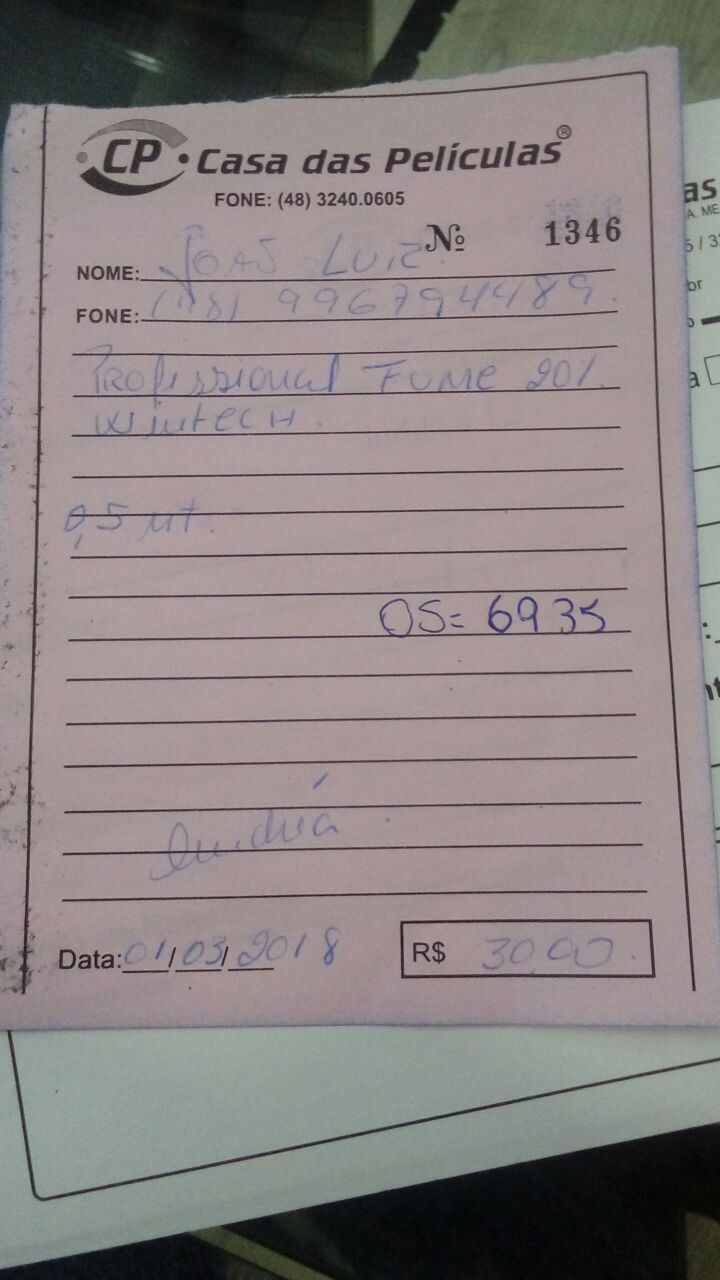 CP Casa das Películas®
FONE: (48) 3240.0605
Nº 1346
NOME: João Luiz
FONE: (48) 996794489
Profissional Fume 20%
Wintech
0,5 mt.
OS= 6935
Data: 01/03/2018
R$ 30,00
as
A. ME
5 / 3
br
a